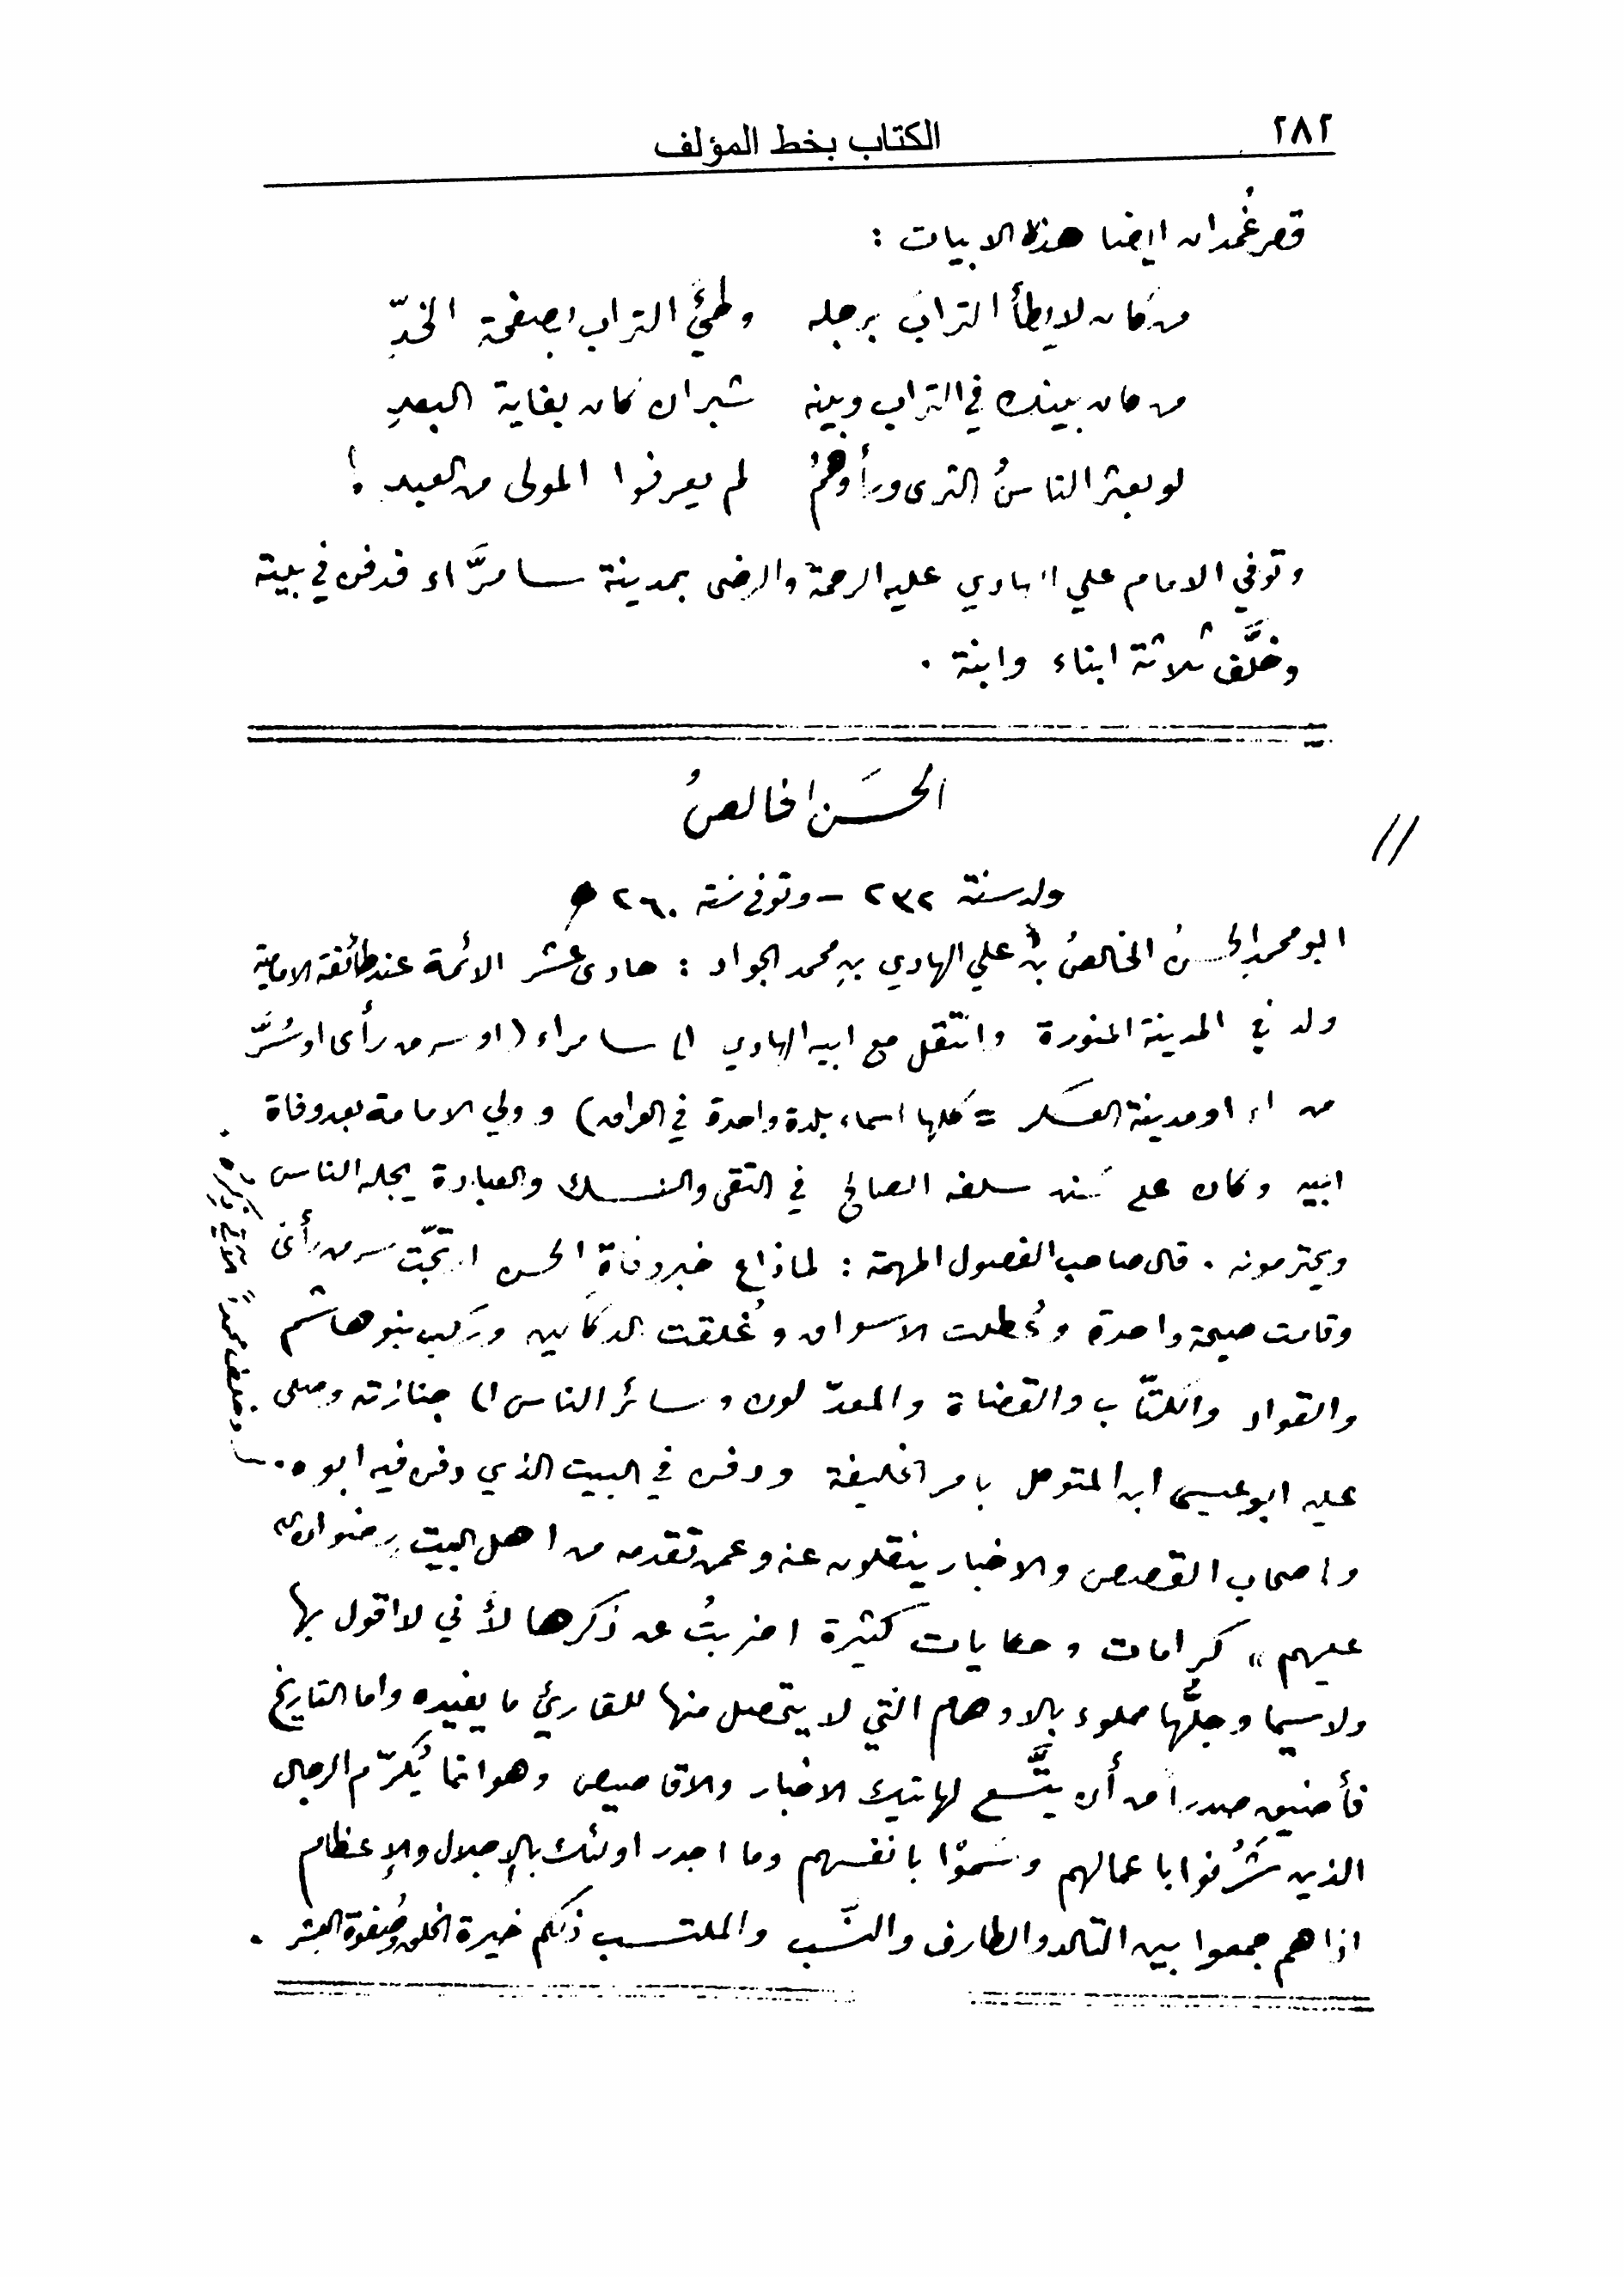 ٢٨٢
الكتاب بخط المؤلف
قصر غُمدان ايضا هذه الابيات :
من كان لا يطأ الترابَ برجله وطئَ التراب بصفحة الخدِّ
من كان بينك في التراب وبينه شبران كان بغاية البعدِ
لو بعثر الناسُ الثرى ورأوهمُ لم يعرفوا المولى من العبد !
وتوفي الامام علي الهادي عليه الرحمة والرضى بمدينة سامرَّاء فدفن في بيته
وخلَّف ثلاثة ابناء وابنة .
الحسَن الخالصُ
//
ولد سنة ٢٣٢ – وتوفي سنة ٢٦٠ ه
ابو محمد الحسنُ الخالصُ بن علي الهادي بنِ محمد الجواد : حادي عشر الائمة عند طائفة الامامية
ولد في المدينة المنورة وانتقل مع ابيه الهادي الى سامراء (او سر من رأى او سُرَّ
من اء او مدينة العسكر = كلها اسماء بلدة واحدة في العراق) وولي الامامة بعد وفاة
ابيه وكان على سَنن سلفه الصالح في التقى والنسك والعبادة يجله الناس
ويحترمونه . قال صاحب الفصول المهمة : لما ذاع خبر وفاة الحسن ارتجّت سر من رأى
وقامت صيحة واحدة وعُطلت الاسواق وغُلقت الدكاكين وركب بنو هاشم
والقواد والكتّاب والقضاة والمعدّلون وسائر الناس الى جنازته وصلى
عليه ابو عيسى ابن المتوكل بامر الخليفة ودفن في البيت الذي دفن فيه ابوه .
وخلف محمداً الآتي ذكره .
واصحاب القصص والاخبار ينقلون عنه وعمن تقدمه من اهل البيت „ رضوان الله
عليهم “ كرامات وحكايات كثيرة اضربتُ عن ذكرها لأني لا اقول بها
ولا سيما وجلُّها مملوء بالاوهام التي لا يتحصل منها للقارئ ما يفيده واما التاريخ
فأضيق صدراً من أن يتَّسع لهاتيك الاخبار والاقاصيص وهو انما يُكرّم الرجال
الذين شَرُفوا باعمالهم وسَموْا بانفسهم وما اجدر اولئك بالإجلال والإعظام
اذا هم جمعوا بين التالد والطارف والنسَب والمكتسب ذلكم خيرة الخلق وصُفوة البشر .